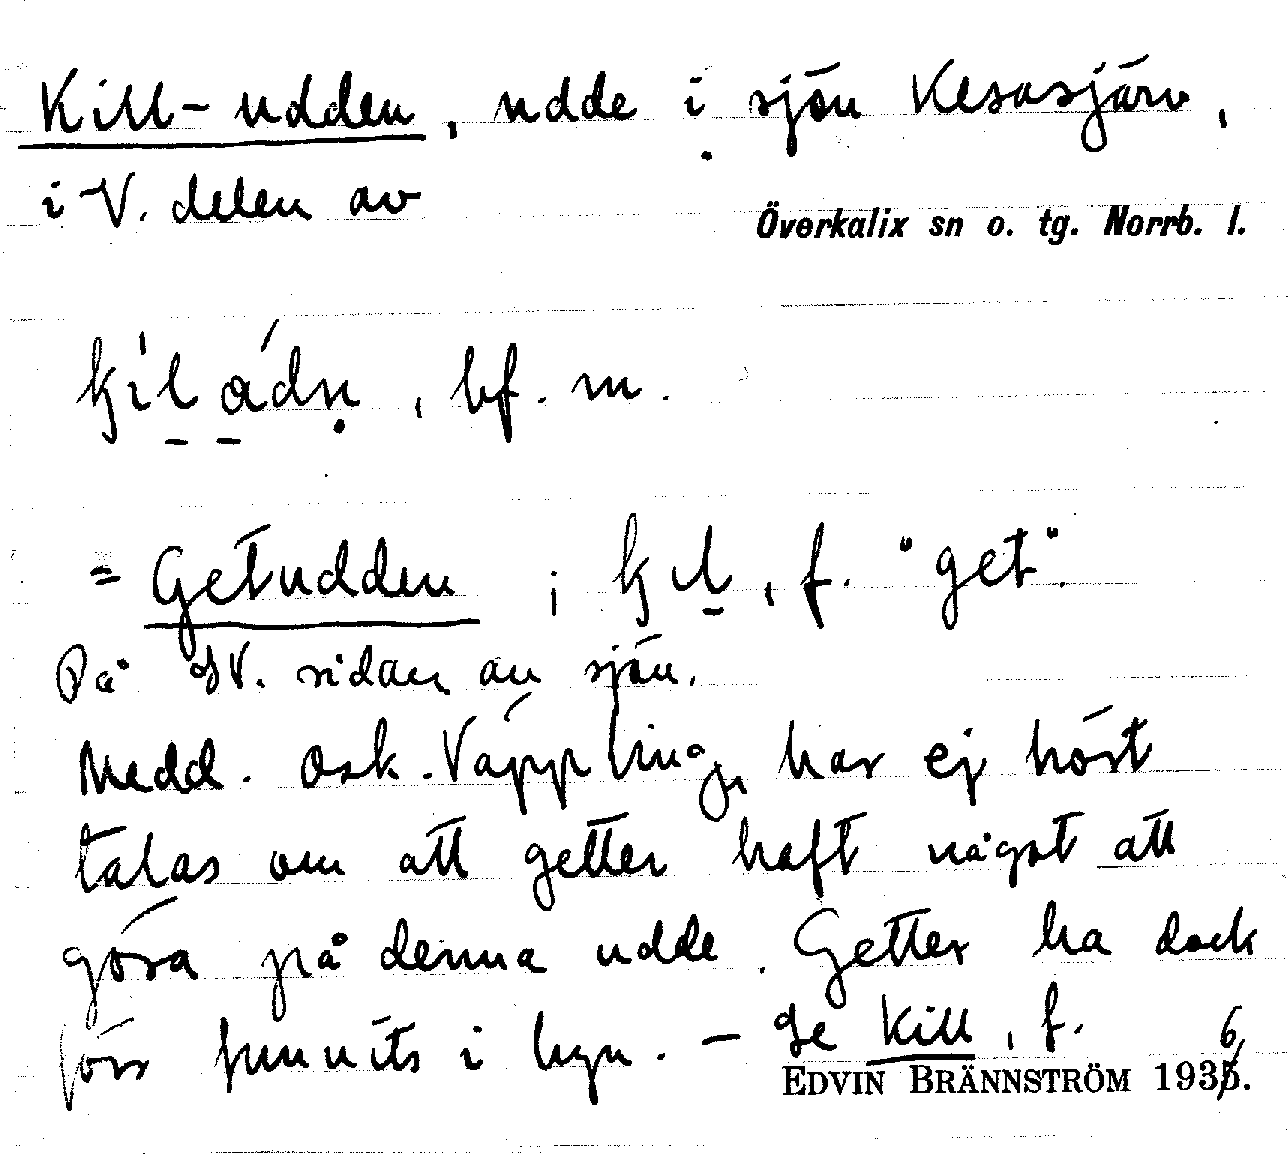 Kill-udden, udde i sjön Kesasjärv,
i V. delen av
Överkalix sn o. tg. Norrb. l.
kil ádn, bf. m.
= Getudden; kil, f. "get".
På SV. sidan av sjön.
Medd. Osk. Väppling, har ej hört
talas om att getter haft något att
göra på denna udde. Getter ha dock
förr funnits i byn. - Se Kill, f.
EDVIN BRÄNNSTRÖM 1936.